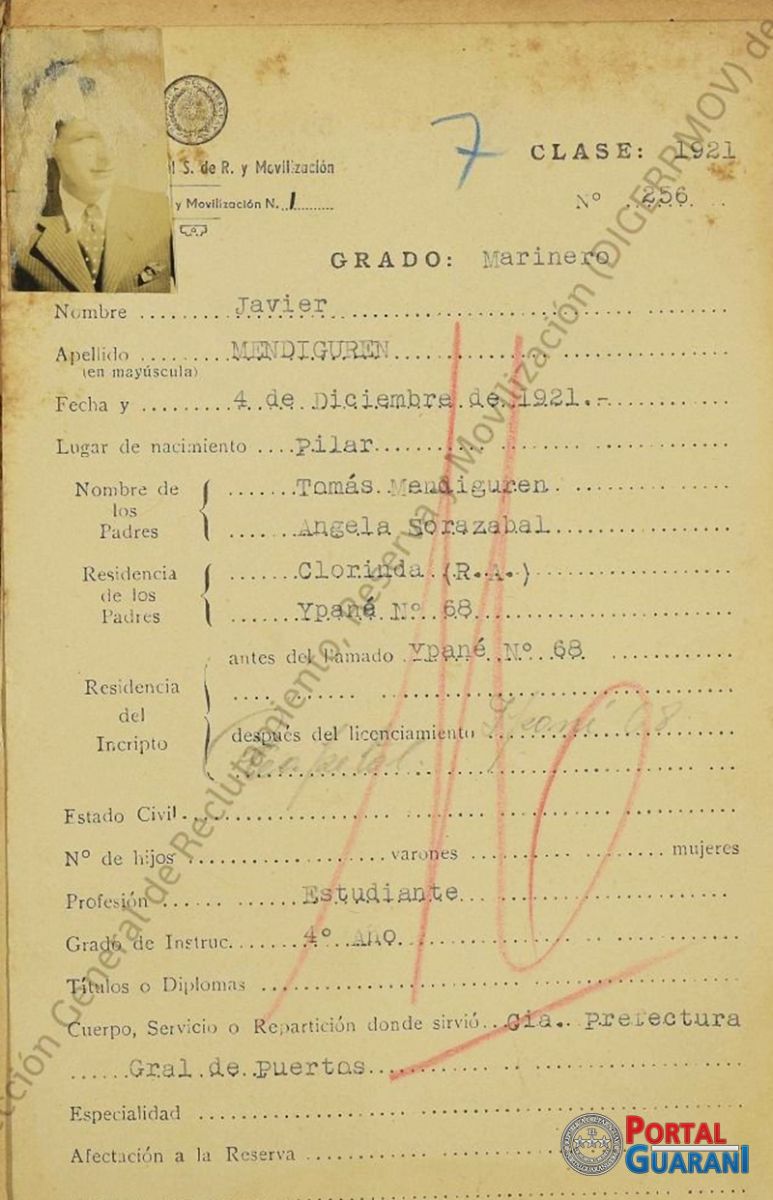 l S. de R. y Movilización
7
CLASE: 1921
y Movilización N. 1
Nº 256
GRADO: Marinero
Nombre Javier
Apellido MENDIGUREN
(en mayúscula)
Fecha y 4 de Diciembre de 1921.-
Lugar de nacimiento Pilar
Nombre de los Padres Tomás Mendiguren
Angela Sorazabal
Residencia de los Padres Clorinda (R.A.)
Ypané Nº 68
Residencia del Incripto
antes del llamado Ypané Nº 68
después del licenciamiento 68
Capital.
Estado Civil
Nº de hijos varones mujeres
Profesión Estudiante
Grado de Instruc. 4º Año
Títulos o Diplomas
Cuerpo, Servicio o Repartición donde sirvió Cia. Prefectura
Gral de Puertos
Especialidad
Afectación a la Reserva
ección General de Reclutamiento, Reserva y Movilización (DIGERRMOV) de
PORTAL
GUARANI